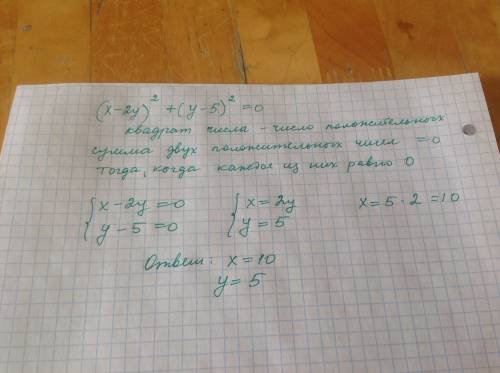 (x-2y)² + (y-5)² = 0
квадрат числа - число положительных
сумма двух положительных чисел = 0
тогда, когда каждое из них равно 0
{ x-2y=0 { x=2y x=5·2=10
{ y-5=0 { y=5
Ответ: x=10
y=5